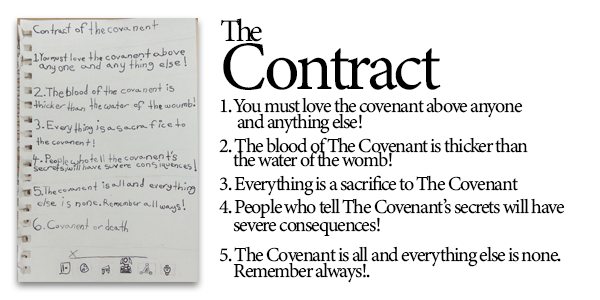 Contract of the covanent
1. You must love the covanent above
any one and any thing else!
2. The blood of the covanent is
thicker than the water of the woumb!
3. Every thing is a sacrafice to
the covanent!
4. People who tell the covanent's
secrets will have severe consiquences!
5. The covanent is all and every thing
else is none. Remember all ways!
6. Covanent or death
X
The
Contract
1. You must love the covenant above anyone
and anything else!
2. The blood of The Covenant is thicker than
the water of the womb!
3. Everything is a sacrifice to The Covenant
4. People who tell The Covenant's secrets will have
severe consequences!
5. The Covenant is all and everything else is none.
Remember always!.